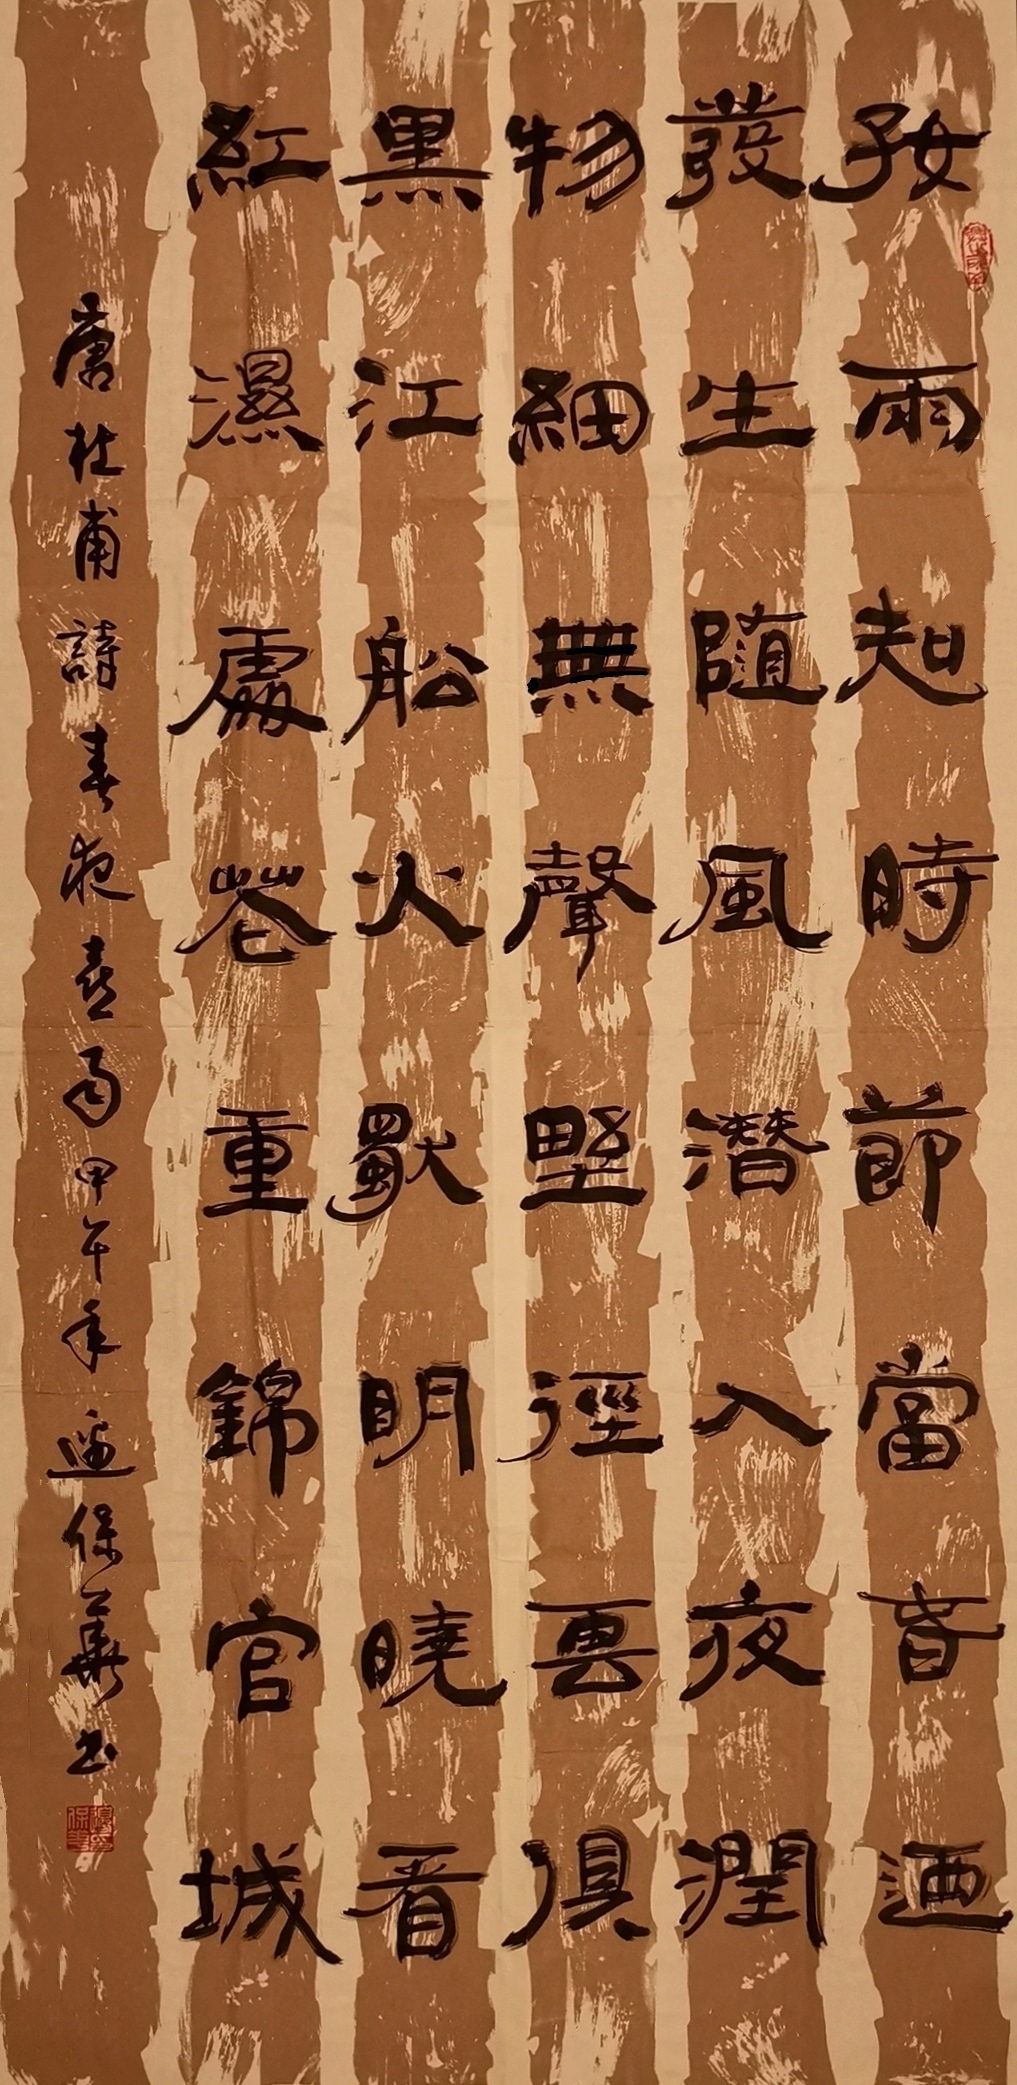 好雨知時節當春迺
發生随風潛入夜潤
物細無聲野徑雲俱
黑江船火獨明曉看
紅濕處花重錦官城
唐杜甫詩春夜喜雨甲午年保華書